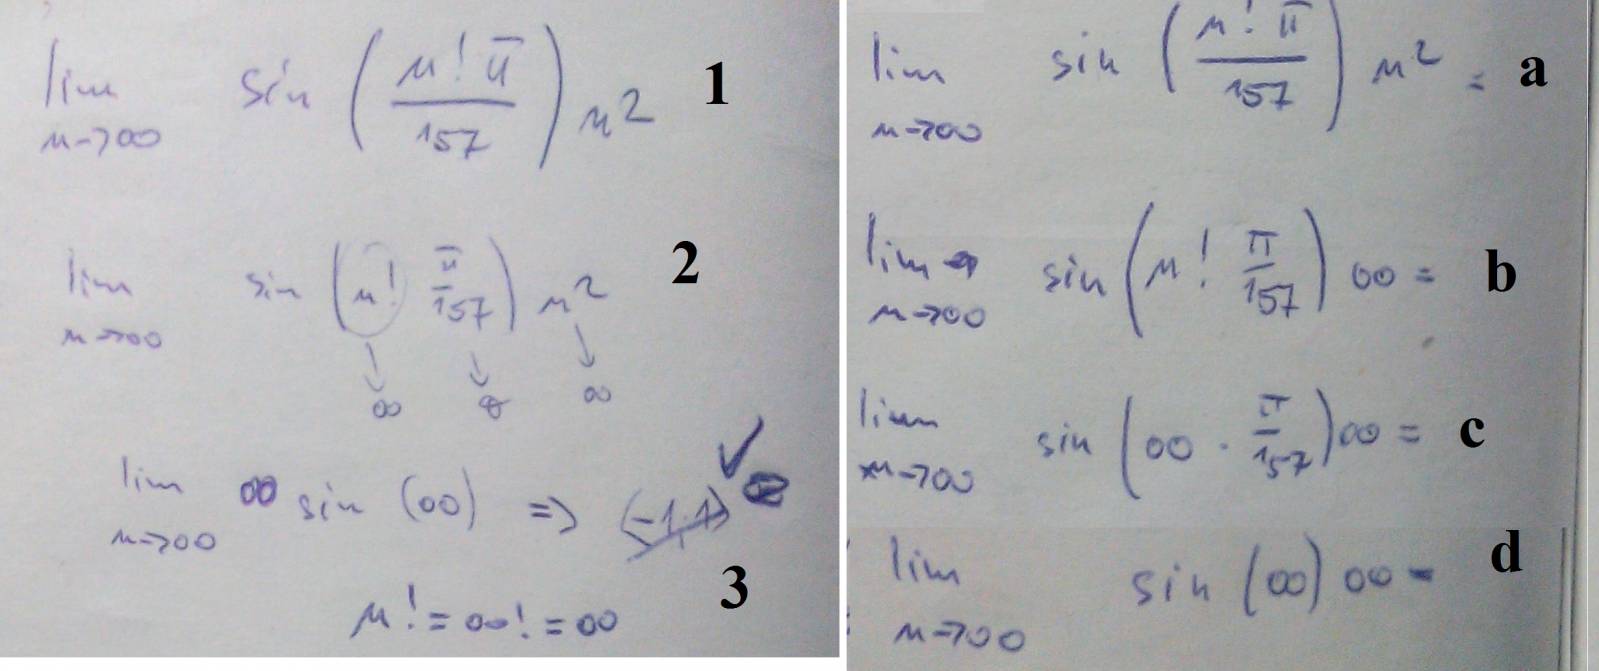 lim n→∞ sin (n! π / 157) n² 1
lim n→∞ sin (n! π/157) n² 2
↓ ∞ ↓ ↓ ∞
lim n→∞ ∞ sin (∞) => (-1,1) ✓
n! = ∞! = ∞ 3
lim n→∞ sin (n! π / 157) n² = a
lim n→∞ sin (n! π/157) ∞ = b
lim n→∞ sin (∞ · π/157) ∞ = c
lim n→∞ sin (∞) ∞ = d